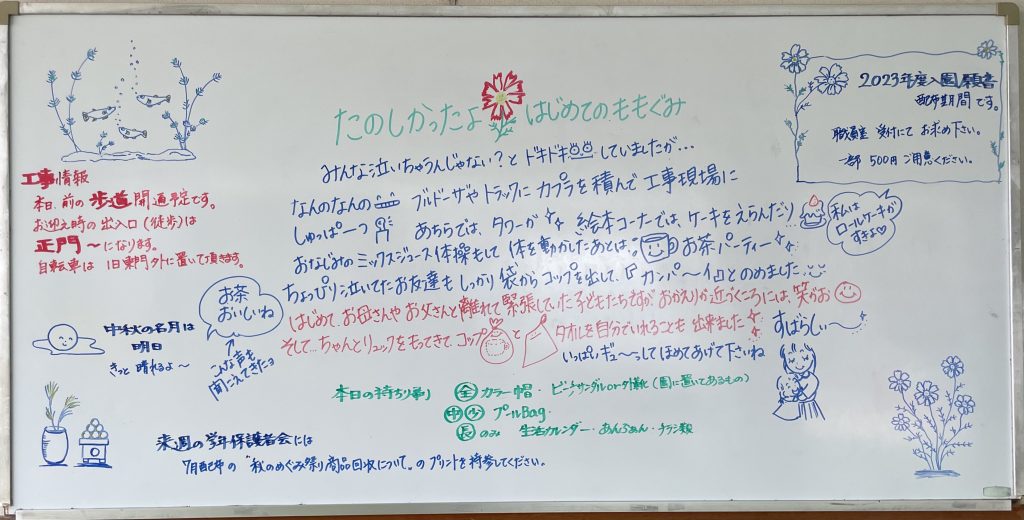 たのしかったよ はじめてのももぐみ
みんな泣いちゃうんじゃない?と ドキドキしていましたが…
なんのなんの ブルドーザやトラックに カプラを積んで 工事現場に
しゅっぱーつ あちらでは、タワーが 絵本コーナーでは、ケーキをえらんだり
おなじみのミックスジュース体操もして 体を動かしたあとは、お茶パーティー
ちょっぴり泣いてたお友達も しっかり袋からコップを出して、『カンパ〜イ』とのめました
はじめて、お母さんやお父さんと離れて緊張していた子どもたちですが おかえりが近づくころには、笑がお
そして…ちゃんとリュックをもってきて、コップ と タオルを自分でいれることも 出来ました
いっぱいギュ〜ってしてほめてあげて下さいね
すばらしい〜
私は
ロールケーキが
すきよ♡
お茶
おいしいね
こんな声も
聞こえてきたョ
2023年度入園願書
配布期間です。
職員室 受付にて お求め下さい。
一部 500円 ご用意ください。
工事情報
本日、前の歩道開通予定です。
お迎え時の出入口(徒歩)は
正門〜になります。
自転車は 旧東門外に置いて頂きます。
中秋の名月は
明日
きっと 晴れるよ〜
本日の持ち帰り
全 カラー帽・ビーチサンダルor夕涼み(園に置いてあるもの)
中少 プールBag・
長のみ 生活カレンダー・あんふぁん・チラシ類
来週の学年保護者会には
7月配布の "秋のめぐみ祭り商品回収について"のプリントを持参してください。